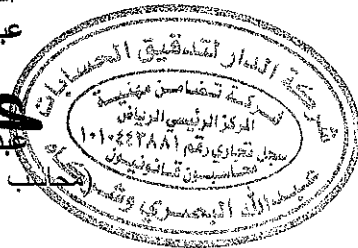 شركة الدار لتدقيق الحسابات
شركة تضامن مهنية
المركز الرئيسي الرياض
سجل تجاري رقم ١٠١٠٤٤٢٨٨١
محاسبون قانونيون
عبدالله البصري وشركاه